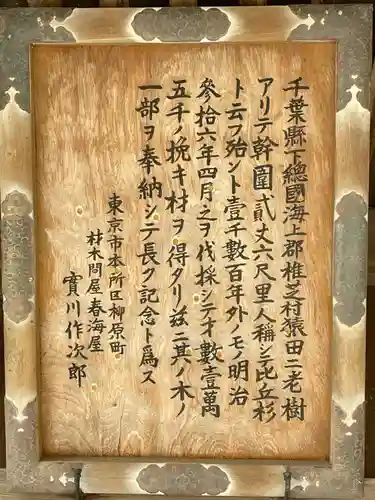 千葉縣下總國海上郡椎芝村猿田ニ老樹
アリテ幹圍貳丈六尺里人稱シ比丘杉
ト云フ殆ント壹千數百年外ノモノ明治
參拾六年四月之ヲ伐採シテオ數壹萬
五千ノ挽キ材ヲ得タリ茲ニ其ノ木ノ
一部ヲ奉納シテ長ク記念ト爲ス
東京市本所区柳原町
材木問屋春海屋
寳川作次郎